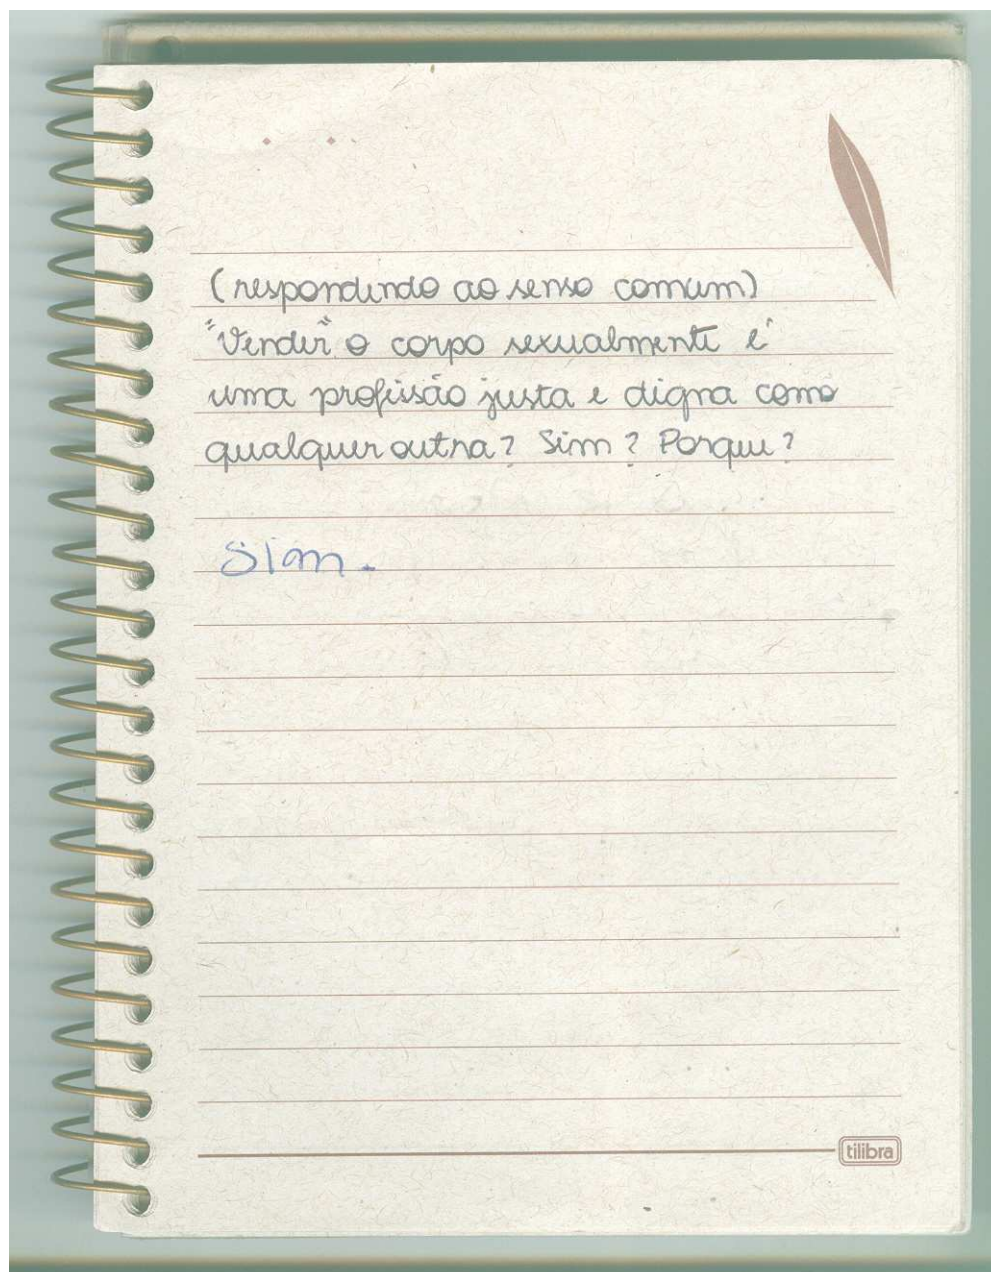 (respondendo ao senso comum)
"Vender" o corpo sexualmente é
uma profissão justa e digna como
qualquer outra? Sim? Porque?
Sim.
tilibra